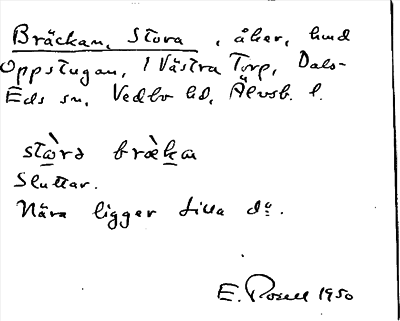 Bräckan, Stora, åker, hmd
Oppstugan, 1 Västra Torp, Dals-
Eds sn, Vedbo hd, Älvsb. l.
stòrə bræ̀kan
Sluttar.
Nära ligger Lilla dº.
E. Rosell 1950